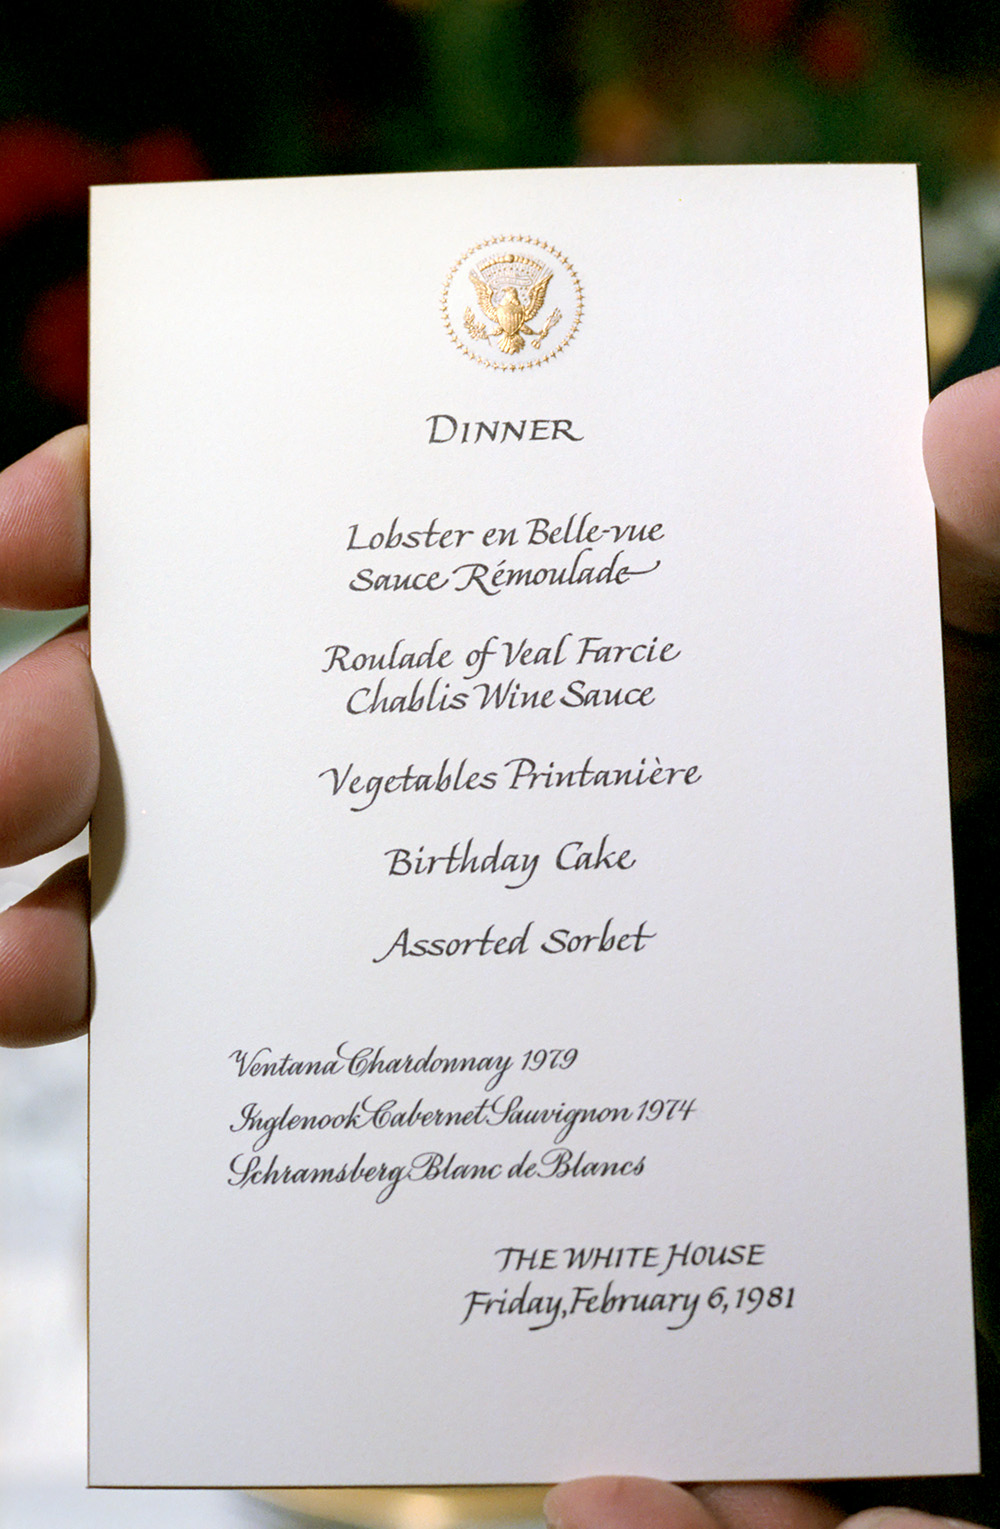 DINNER
Lobster en Belle-vue
Sauce Rémoulade
Roulade of Veal Farcie
Chablis Wine Sauce
Vegetables Printanière
Birthday Cake
Assorted Sorbet
Ventana Chardonnay 1979
Inglenook Cabernet Sauvignon 1974
Schramsberg Blanc de Blancs
THE WHITE HOUSE
Friday, February 6, 1981